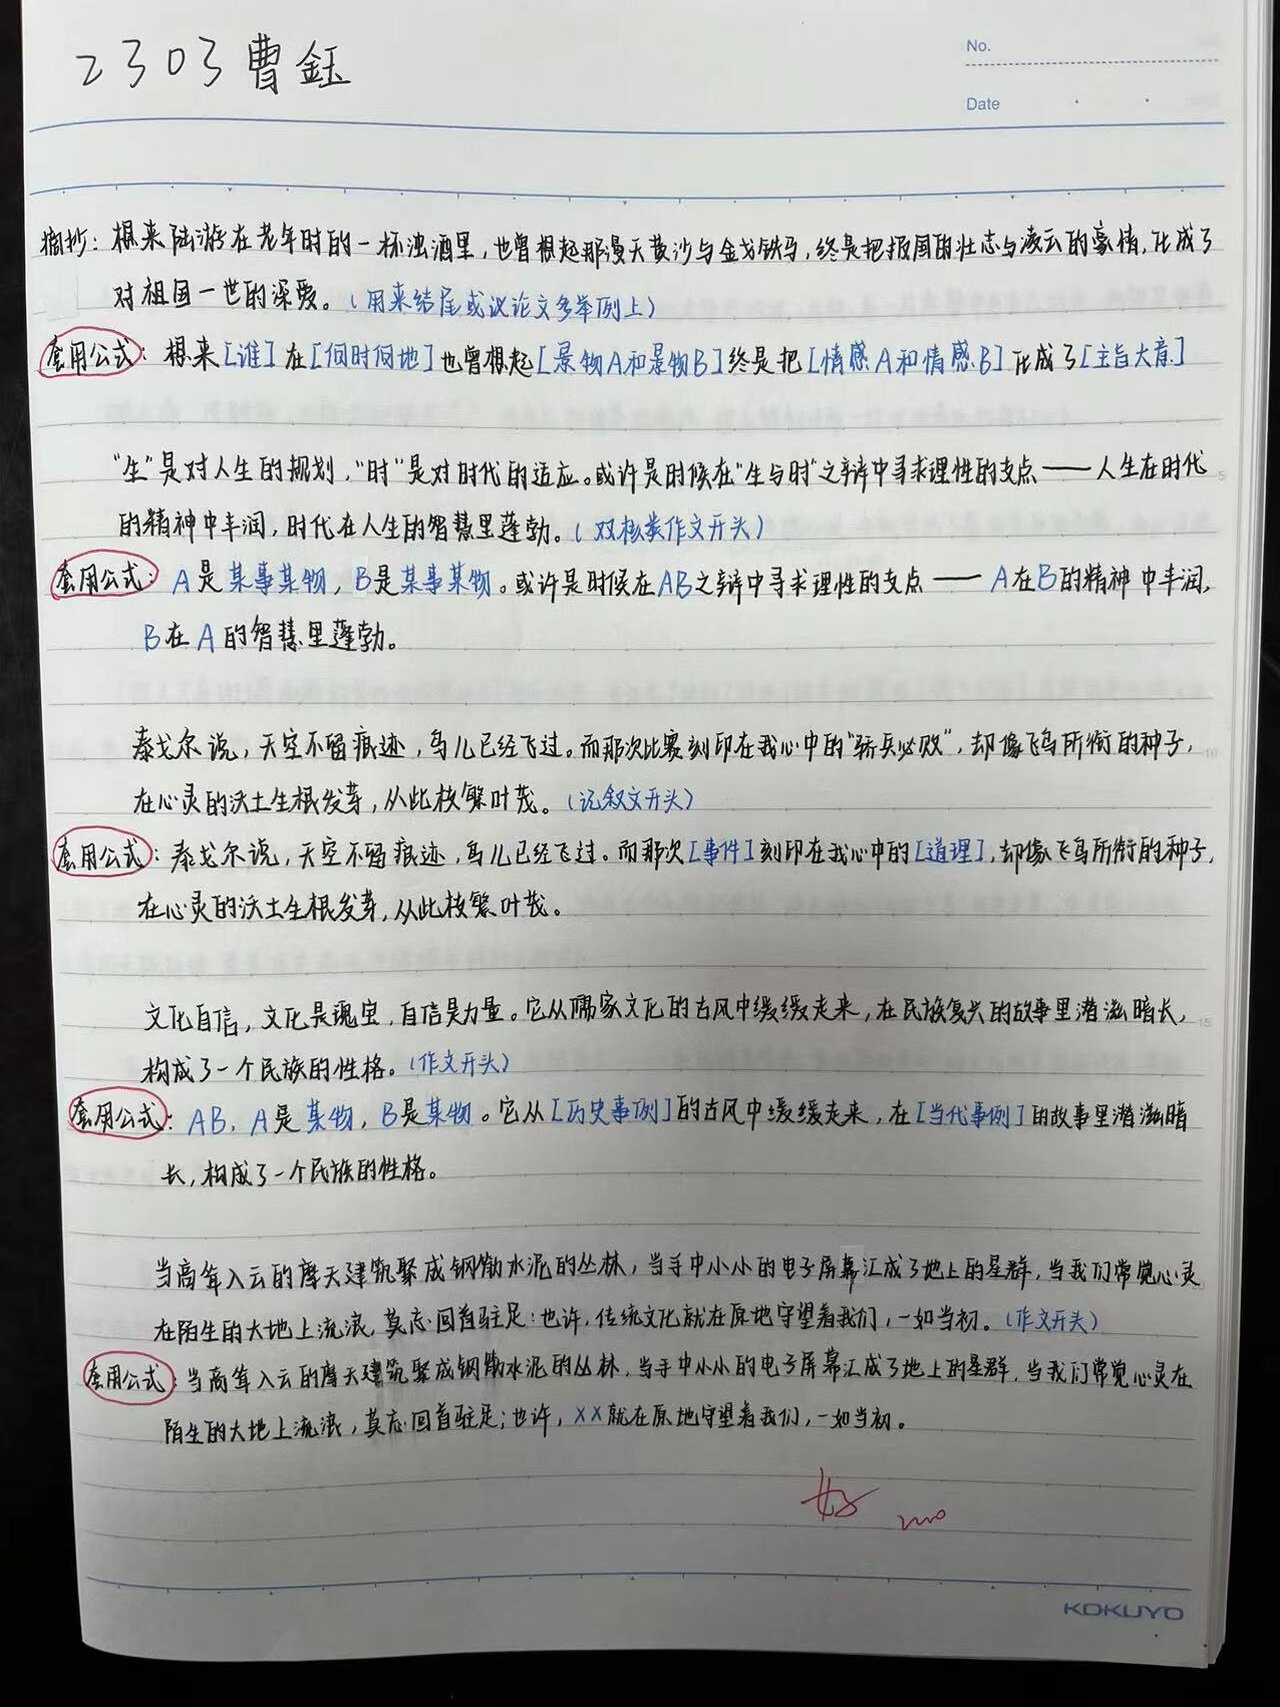 2303曹鈺
No.
Date
摘抄：想来陆游在老年时的一杯浊酒里，也曾想起那漫天黄沙与金戈铁马，终是把报国的壮志与凌云的豪情，化成了
对祖国一世的深爱。（用来结尾或议论文多举例上）
套用公式：想来[谁]在[何时何地]也曾想起[景物A和景物B]终是把[情感A和情感B]化成了[主旨大意]
“生”是对人生的规划，“时”是对时代的适应。或许是时候在“生与时”之辩中寻求理性的支点——人生在时代
的精神中丰润，时代在人生的智慧里蓬勃。（双核类作文开头）
套用公式：A是某事某物，B是某事某物。或许是时候在AB之辩中寻求理性的支点——A在B的精神中丰润，
B在A的智慧里蓬勃。
泰戈尔说，天空不留痕迹，鸟儿已经飞过。而那次比赛刻印在我心中的“骄兵必败”，却像飞鸟所衔的种子，
在心灵的沃土生根发芽，从此枝繁叶茂。（记叙文开头）
套用公式：泰戈尔说，天空不留痕迹，鸟儿已经飞过。而那次[事件]刻印在我心中的[道理]，却像飞鸟所衔的种子，
在心灵的沃土生根发芽，从此枝繁叶茂。
文化自信，文化是瑰宝，自信是力量。它从儒家文化的古风中缓缓走来，在民族复兴的故事里潜滋暗长，
构成了一个民族的性格。（作文开头）
套用公式：AB，A是某物，B是某物。它从[历史事例]的古风中缓缓走来，在[当代事例]的故事里潜滋暗
长，构成了一个民族的性格。
当高耸入云的摩天建筑聚成钢筋水泥的丛林，当手中小小的电子屏幕汇成了地上的星群，当我们常觉心灵
在陌生的大地上流浪，莫忘回首驻足：也许，传统文化就在原地守望着我们，一如当初。（作文开头）
套用公式：当高耸入云的摩天建筑聚成钢筋水泥的丛林，当手中小小的电子屏幕汇成了地上的星群，当我们常觉心灵在
陌生的大地上流浪，莫忘回首驻足；也许，××就在原地守望着我们，一如当初。
好
KOKUYO